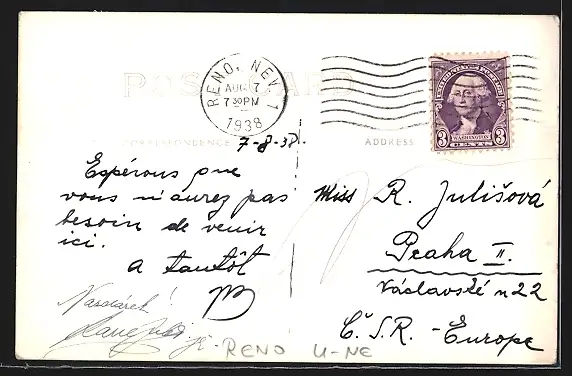 POST CARD
RENO, NEV. 1
AUG 7
7 30 PM
1938
UNITED STATES POSTAGE
3 WASHINGTON 3
CENTS
CORRESPONDENCE
ADDRESS
7-8-38.
Espérons que
vous n'aurez pas
besoin de venir
ici.
a tantôt
Nazdárek!
Miss R. Julišová
Praha II.
Václavské n 22
Č.S.R. - Europe
RENO U-NE